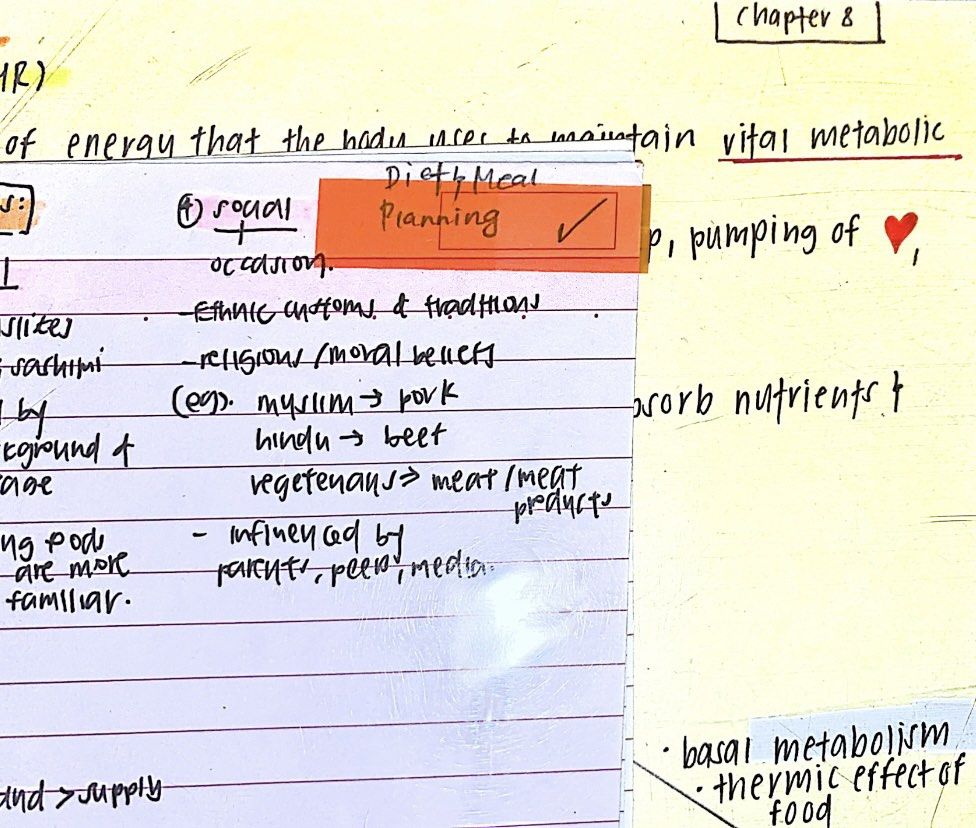 Chapter 8
of energy that the body uses to maintain vital metabolic
Diet & Meal
Planning
④ social
occasion.
, pumping of ❤,
- Ethnic customs & traditions
sashimi
- religious / moral beliefs
by
(eg). muslim → pork
nutrients &
hindu → beef
vegetarians → meat / meat
products
- influenced by
are more
parents, peers, media.
familiar.
· basal metabolism
· thermic effect of
food
> supply